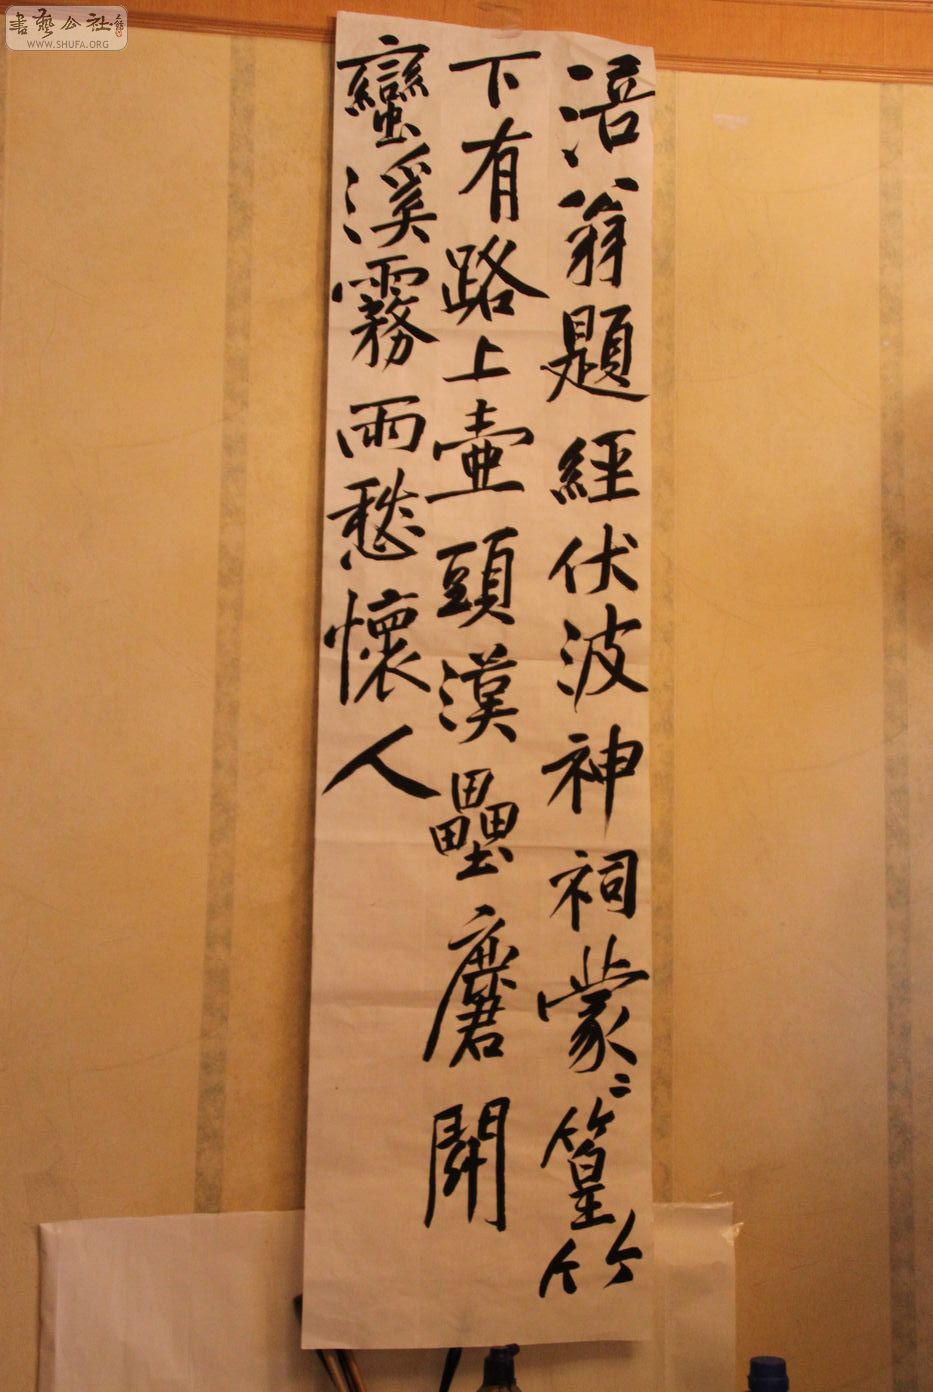 涪翁題經伏波神祠蒙〻篁竹
下有路上壺頭漢壘麏開
蠻溪霧雨愁懷人
書藝公社
WWW.SHUFA.ORG